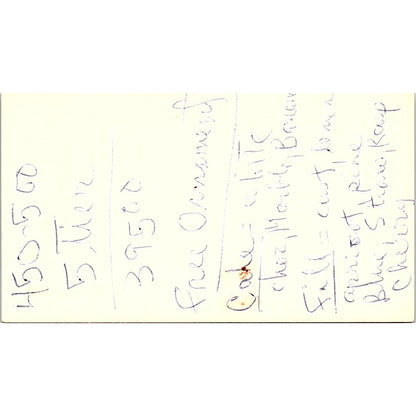 450-500
5 Tier
395.00
Free Ornament
Cake = white
choc, Marble, Banana
Fill = cust, lemon
apricot, pine
Blue, Straw, Rasp
Cherry